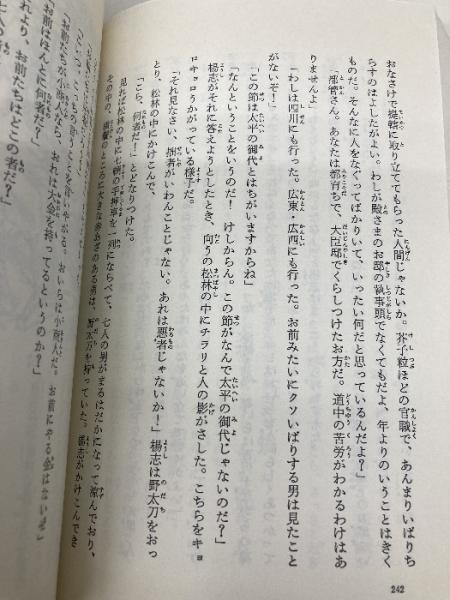 おなさけで提轄に取り立ててもらった人間じゃないか。芥子粒ほどの官職で、あんまりいばりち
らすのはよしたがよい。わしが殿さまのお邸の執事頭でなくてもだよ、年よりのいうことはきく
ものだ。そんなに人をなぐってばかりいて、いったい何だと思っているんだよ？」
「都管さん。あなたは都育ちで、大臣邸でくらしつけたお方だ。道中の苦労がわかるわけはあ
りませんよ」
「わしは四川にも行った。広東・広西にも行った。お前みたいにクソいばりする男は見たこと
がないぞ！」
「この節は太平の御代とはちがいますからね」
「なんということをいうのだ！　けしからん。この節がなんで太平の御代じゃないのだ？」
楊志がそれに答えようとしたとき、向うの松林の中にチラリと人の影がさした。こちらをキョ
ロキョロうかがっている様子だ。
「それ見なさい、拙者がいわんことじゃない。あれは悪者じゃないか！」楊志は野太刀をおっ
とり、松林の中にかけこんで、
「こら、何者だ！」とどなりつけた。
見れば松林の中に七輛の手押車を一列にならべて、七人の男がまるはだかになって涼んでおり、
その中の、
ところに大きな赤あざのある男は、野太刀を持っていた。楊志がかけこんでき
おれは大金を持ってるというのか？」
「お前はほんとに何者だ？」
れより、お前たちはどこの者だ？」
242